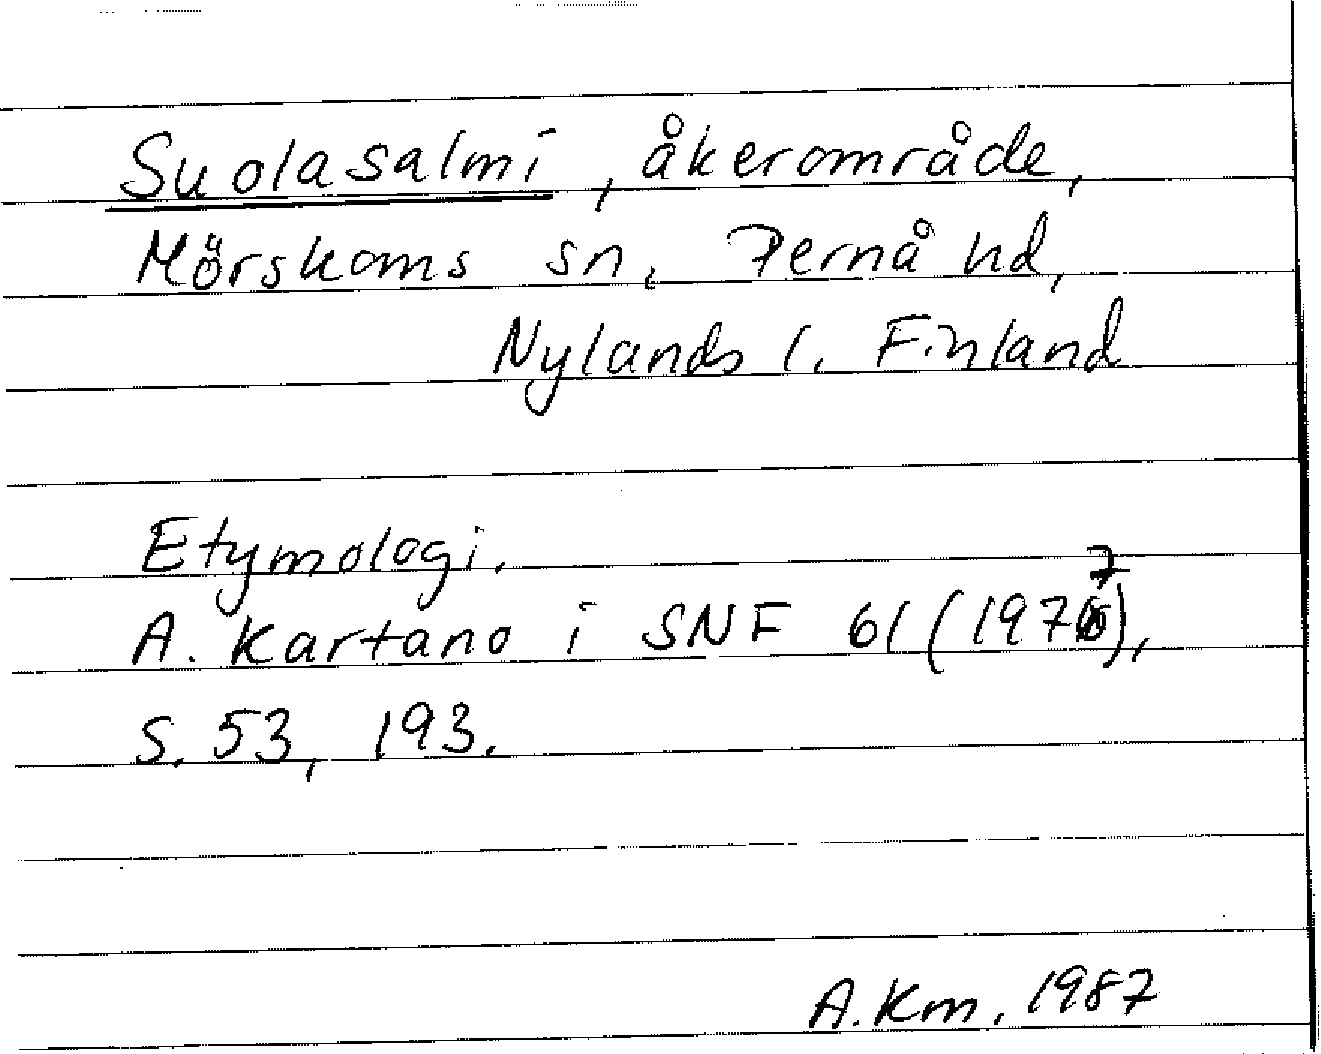 Suolasalmi, åkerområde,
Mörskoms sn, Pernå hd,
Nylands l. Finland
Etymologi.
A. Kartano i SNF 61 (1977),
S. 53, 193.
A. Km. 1987